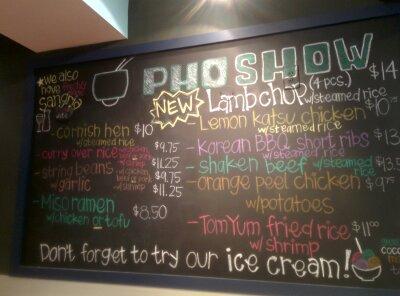 PHO SHOW
*we also
have
Sangria
NEW
Lamb chop (4 pcs.) $14
w/steamed rice
- cornish hen $10
w/steamed rice
- curry over rice $9.75
$11.25
- string beans $9.75
w/garlic $11.25
w/shrimp
- Miso ramen
w/chicken or tofu $8.50
- Lemon katsu chicken $10
w/steamed rice
- Korean BBQ short ribs $13
w/steamed rice
- shaken beef w/steamed rice $13.5
- orange peel chicken $9.75
w/potatoes
- Tom Yum fried rice $11.00
w/shrimp
Don't forget to try our ice cream!